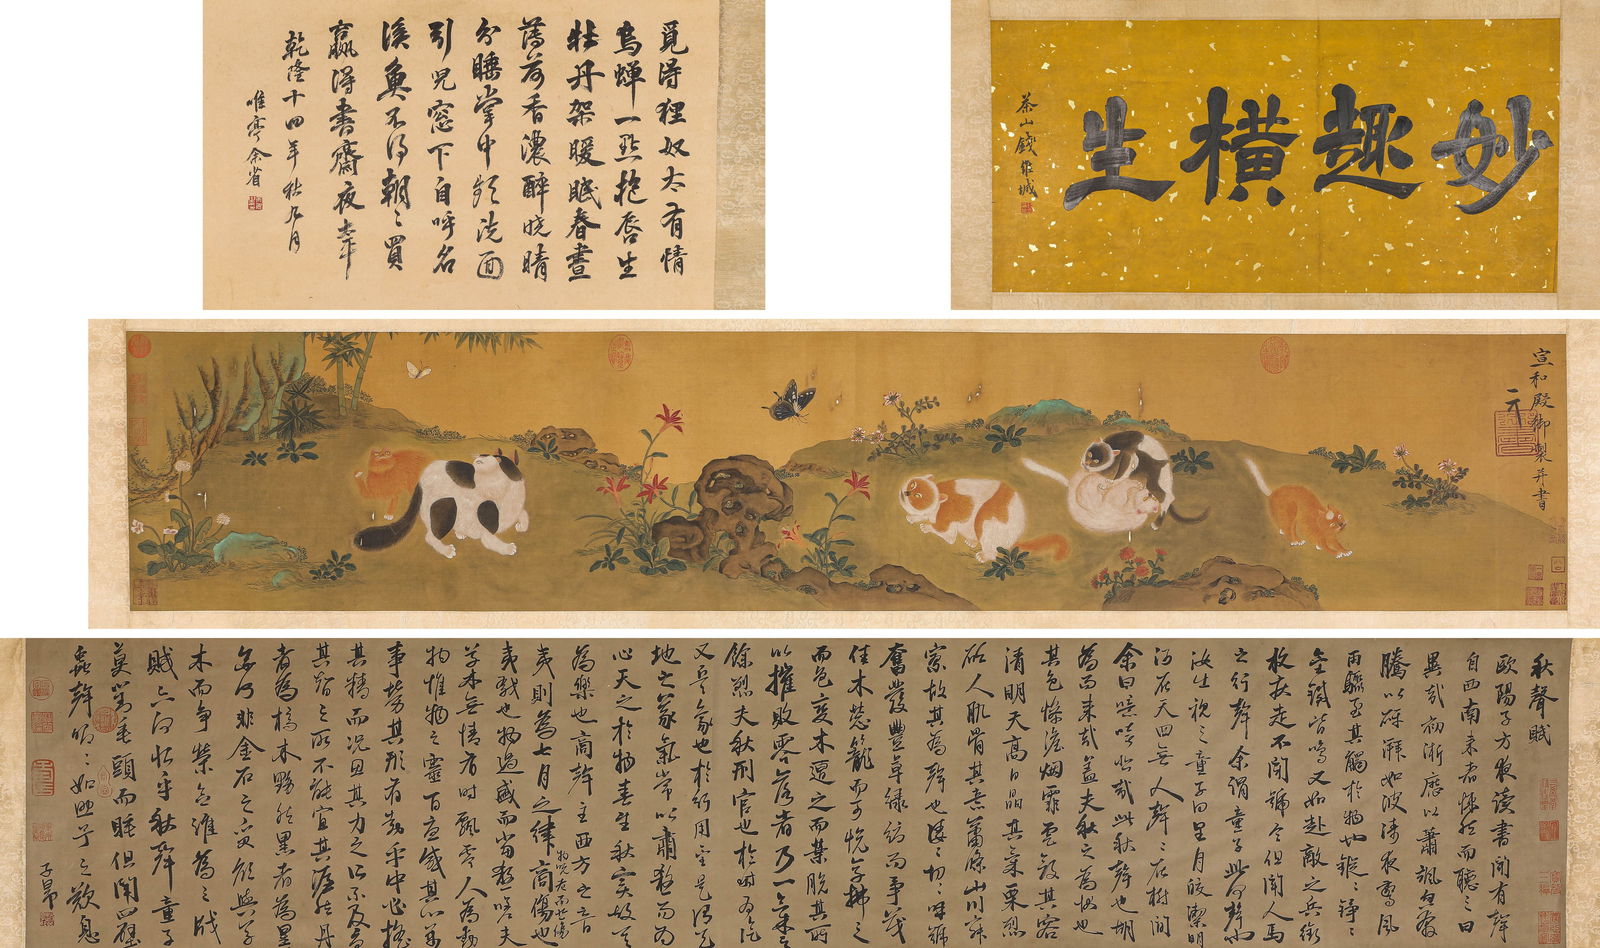 妙趣橫生
茶山錢維城
覓得狸奴太有情
烏蟬一點抱唇生
牡丹架暖眠春晝
薄荷香濃醉曉晴
分睡掌中頻洗面
引兒窗下自呼名
溪魚不得朝〻買
贏得書齋夜
乾隆十四年秋九月
唯亭余省
宣和殿御製并書
秋聲賦
歐陽子方夜讀書聞有聲
自西南來者悚然而聽之曰
異哉初淅瀝以蕭颯忽奔
騰以砰湃如波濤夜驚風
雨驟至其觸於物也鏦〻錚〻
金鐵皆鳴又如赴敵之兵銜
枚疾走不聞號令但聞人馬
之行聲余謂童子此何聲也
汝出視之童子曰星月皎潔明
河在天四無人聲〻在樹間
余曰噫嘻此哉此秋聲也胡
為而來哉蓋夫秋之為狀也
其色慘澹烟霏雲斂其容
清明天高日晶其氣栗烈
砭人肌骨其意蕭條山川寂
寥故其為聲也淒〻切〻呼號
奮發豐草綠縟而爭茂
佳木蔥蘢而可悅草拂之
而色變木遭之而葉脫其所
以摧敗零落者乃一氣之
餘烈夫秋刑官也於時為陰
又兵象也於行用金是謂天
地之義氣常以肅殺而為
心天之於物春生秋實故其
為樂也商聲主西方之音
夷則為七月之律商傷也
物既老而悲傷
夷戮也物過盛而當殺嗟夫
草木無情有時飄零人為動
物惟物之靈百憂感其心萬
事勞其形有動乎中必搖
其精而況思其力之所不及憂
其智之所不能宜其渥然丹
者為槁木黟然黑者為星
奈何非金石之質欲與草
木而爭榮念誰為之戕
賊亦何恨乎秋聲童子
莫對垂頭而睡但聞四壁
蟲聲唧〻如助予之歎息
子昂